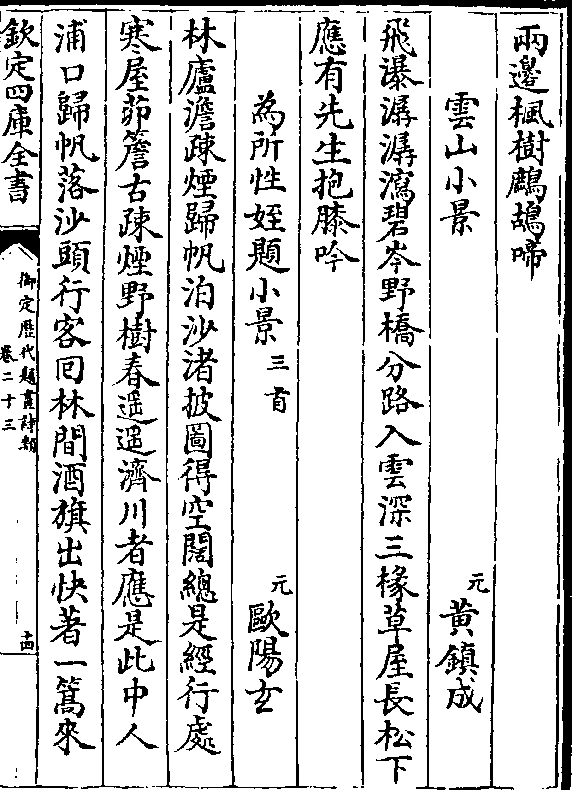 兩邊楓樹鷓鴣啼
雲山小景 元 黃鎮成
飛瀑潺潺瀉碧岑野橋分路入雲深三椽草屋長松下
應有先生抱膝吟
為所性姪題小景 三首 元 歐陽玄
林廬澹疎煙歸帆泊沙渚披圖得空闊總是經行處
寒屋茆簷古疎煙野樹春遥遥濟川者應是此中人
浦口歸帆落沙頭行客回林間酒旗出快著一篙來
欽定四庫全書
御定歷代題畫詩類
卷二十三
十四